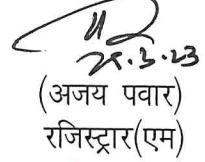 29.3.23
(अजय पवार)
रजिस्ट्रार(एम)